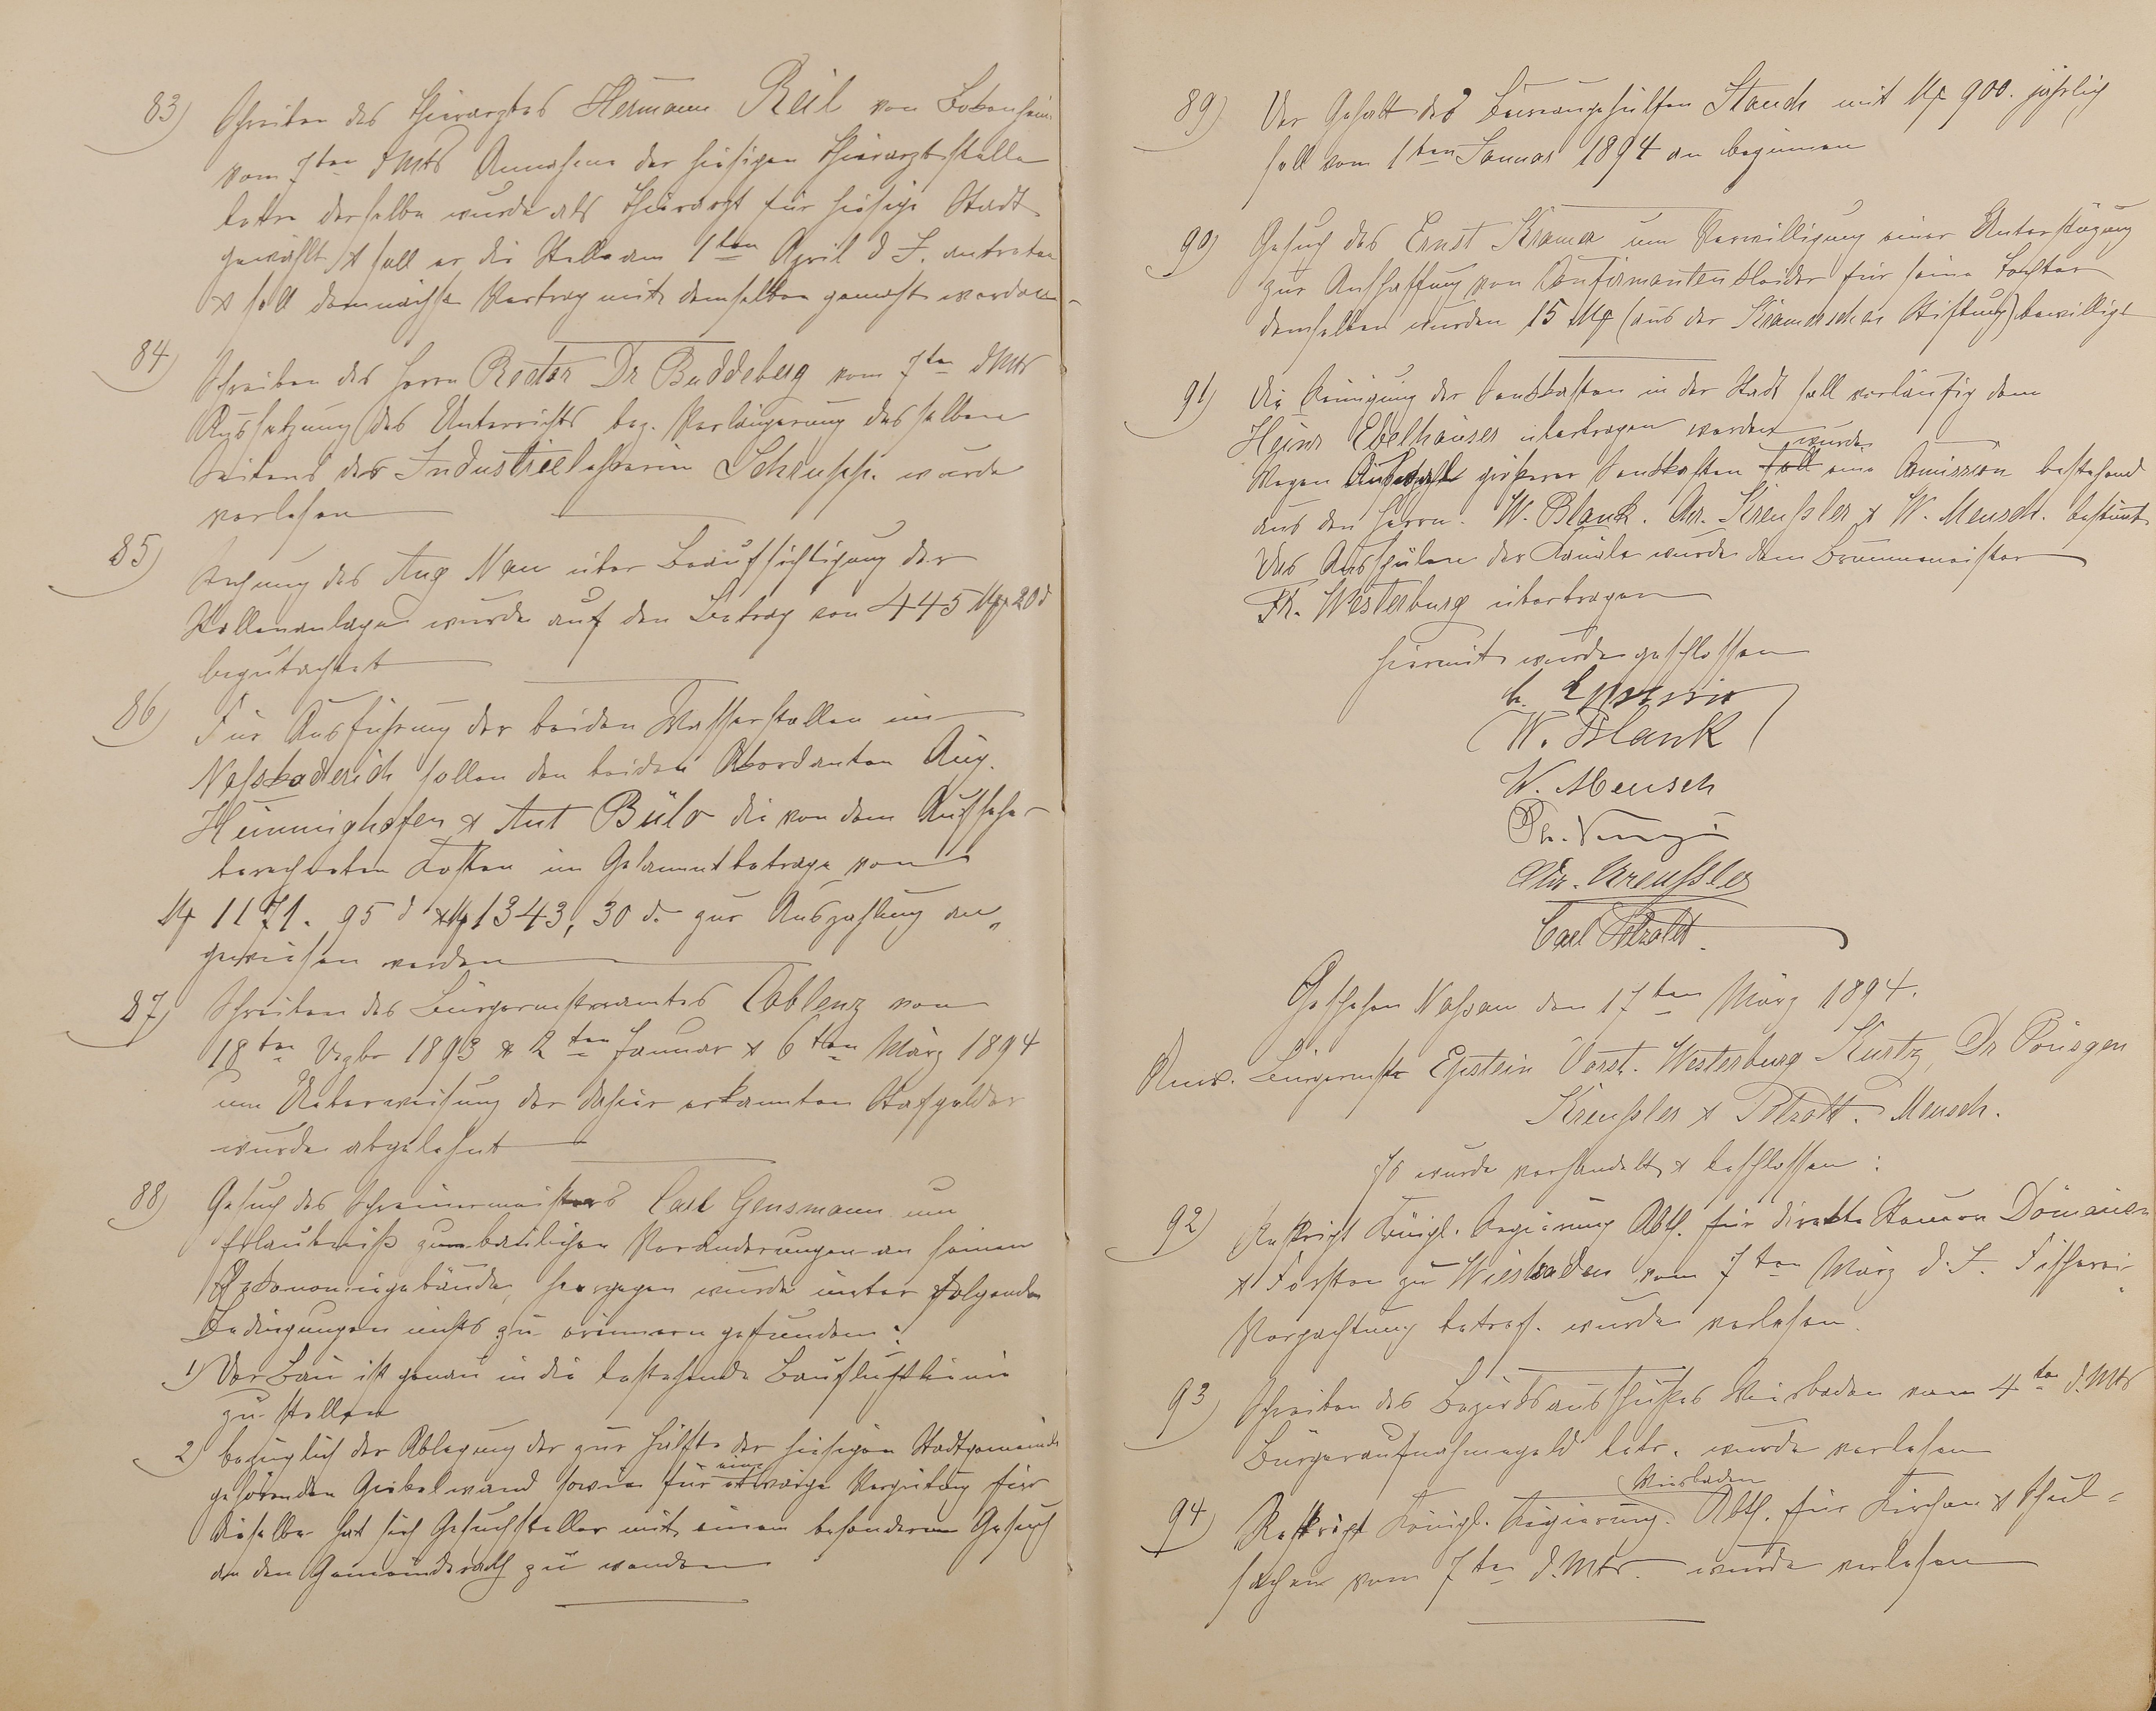 83) Schreiben des Thierarztes Hermann Reil von Bokenheim
vom 7ten d Mts Annahme der hiesigen Thierarztstelle
betrn derselbe wurde als Thierarzt für hiesige Stadt
gewählt & soll er die Stelle am 1ten April d J. antreten
& soll demnächst Vertrag mit demselben gemacht werden
84) Schreiben des Herrn Rector Dr Buddeberg vom 7ten d Mts
Aussetzung des Unterrichts bez. Verlängerung desselben
Seitens der Industrielehrerin Scheuch. wurde
verlesen
85) Rechnung des Aug Nau über Beaufsichtigung der
Stollenanlagen wurde auf den Betrag von 445 Mk 20 d
begutachtet
86) Für Ausführung der beiden Wasserstollen im
Nassbaderich sollen den beiden Akordanten Aug.
Heuninghofen & Ant Bülo die von dem Aufseher
berechneten Kosten im Gesammtbetrage von
Mk 1171. 95 d & Mk 1343, 30 d. zur Auszahlung an„
gewiesen werden
87) Schreiben des Bürgermstreramtes Coblenz vom
18ten Dezbr 1893 & 2ten Januar & 6ten März 1894
um Ueberweisung der dahier erkannten Strafgelder
wurde abgelehnt
88) Gesuch des Schreinermeisters Carl Gensmann um
Erlaubniß zum baulichen Veränderungen an seinem
Oekonomiegebäude, hiergegen wurde unter folgenden
Bedingungen nichts zu erinnern gefunden:
1) Der Bau ist genau in die bestehende Baufluchtlinie
zu stellen
2) bezüglich der Ablegung der zur Hälfte der hiesigen Stadtgemeinde
gehörenden Giebelwand sowie für eine etwaige Vergütung für
dieselbe hat sich Gesuchsteller mit einem besonderen Gesuch
an den Gemeinderath zu wenden
89) Der Gehalt des Bureaugehülfen Stauch mit Mk 900. jährlich
soll vom 1ten Januar 1894 an beginnen
90) Gesuch des Ernst Kramer um Verwilligung einer Unterstüzung
zur Anschaffung von Confirmantenkleider für seine Tochter
demselben wurden 15 Mk (aus der Kramerschen Stiftung) bewilligt
91) Die Reinigung der Senkkasten in der Stadt soll vorläufig dem
Heinr Ebelhäuser übertragen werden
Wegen größerer Senkkasten soll wurde eine Comission bestehend
aus den Herrn. W. Blank. Chr. Kreußler & W. Mensch. bestimt
Das Ausspülen der Kanäle wurde dem Brunnenmeister
Fr. Westerburg übertragen
Hiermit wurde geschlossen
W. Blank
W. Mensch
Chr. Kreußler
Carl Pelzoldt
Geschehen Nassau den 17ten März 1894.
Anw. Bürgermstr Epstein Vorst. Westerburg Kurtz, Dr Pönsgen
Kreußler & Petzoldt. Mensch.
Es wurde verhandelt & beschlossen:
92) Reskript Königl. Regierung Abth. für direkte Steuern Dömänen
& Forsten zu Wiesbaden vom 7ten März d. J. Fischerei-
Verpachtung betref. wurde verlesen.
93) Schreiben des Bezirksausschußes Wiesbaden vom 4ten d. Mts
Bürgeraufnahmegeld betr. wurde verlesen
94) Reskript Königl. Regierung Wiesbaden Abth. für Kirchen & Schul-
sachen vom 7ten d. Mts. wurde verlesen